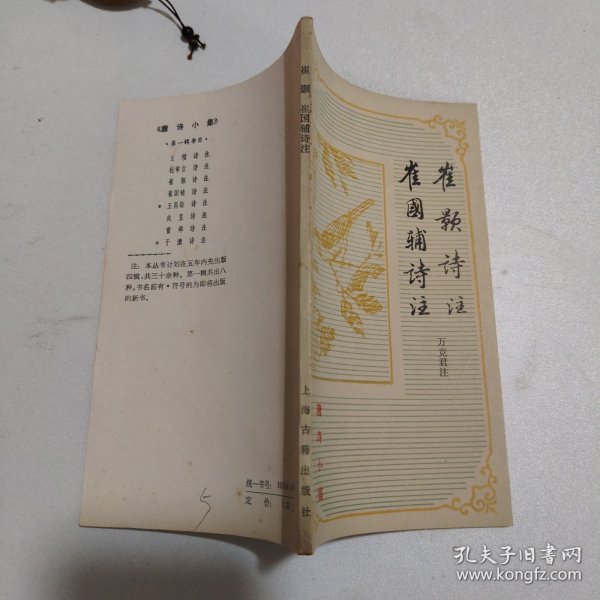 崔颢诗注
崔國輔诗注
万竞君注
唐诗小集
崔颢、崔国辅诗注
上海古籍出版社
《唐诗小集》
·第一辑书目·
王勃诗注
杜审言诗注
崔颢诗注
崔国辅诗注
*王昌龄诗注
戎昱诗注
曹邺诗注
*于濆诗注
注：本丛书计划在五年内先出版
四辑，共三十余种。第一辑共出八
种。书名前有*符号的为即将出版
的新书。
统一书号：
定价：
5
孔夫子旧书网
www.kongfz.com